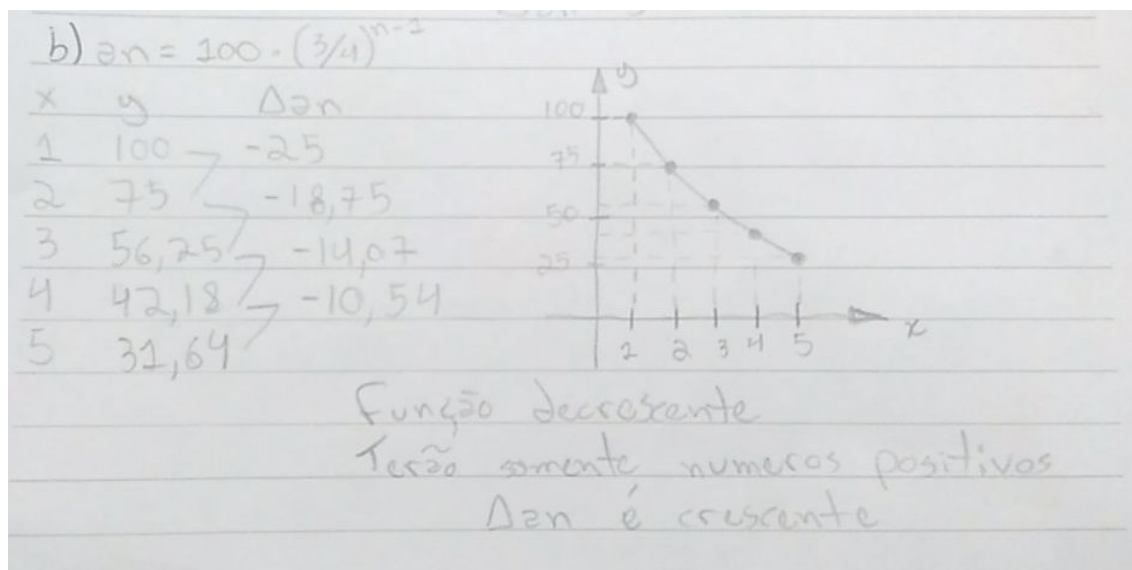 b) an = 100 · (3/4)^n-1
x y Δan
1 100 -25
2 75 -18,75
3 56,25 -14,07
4 42,18 -10,54
5 31,64
y
100
75
50
25
1 2 3 4 5 x
Função decrescente
Terão somente numeros positivos
Δan é crescente